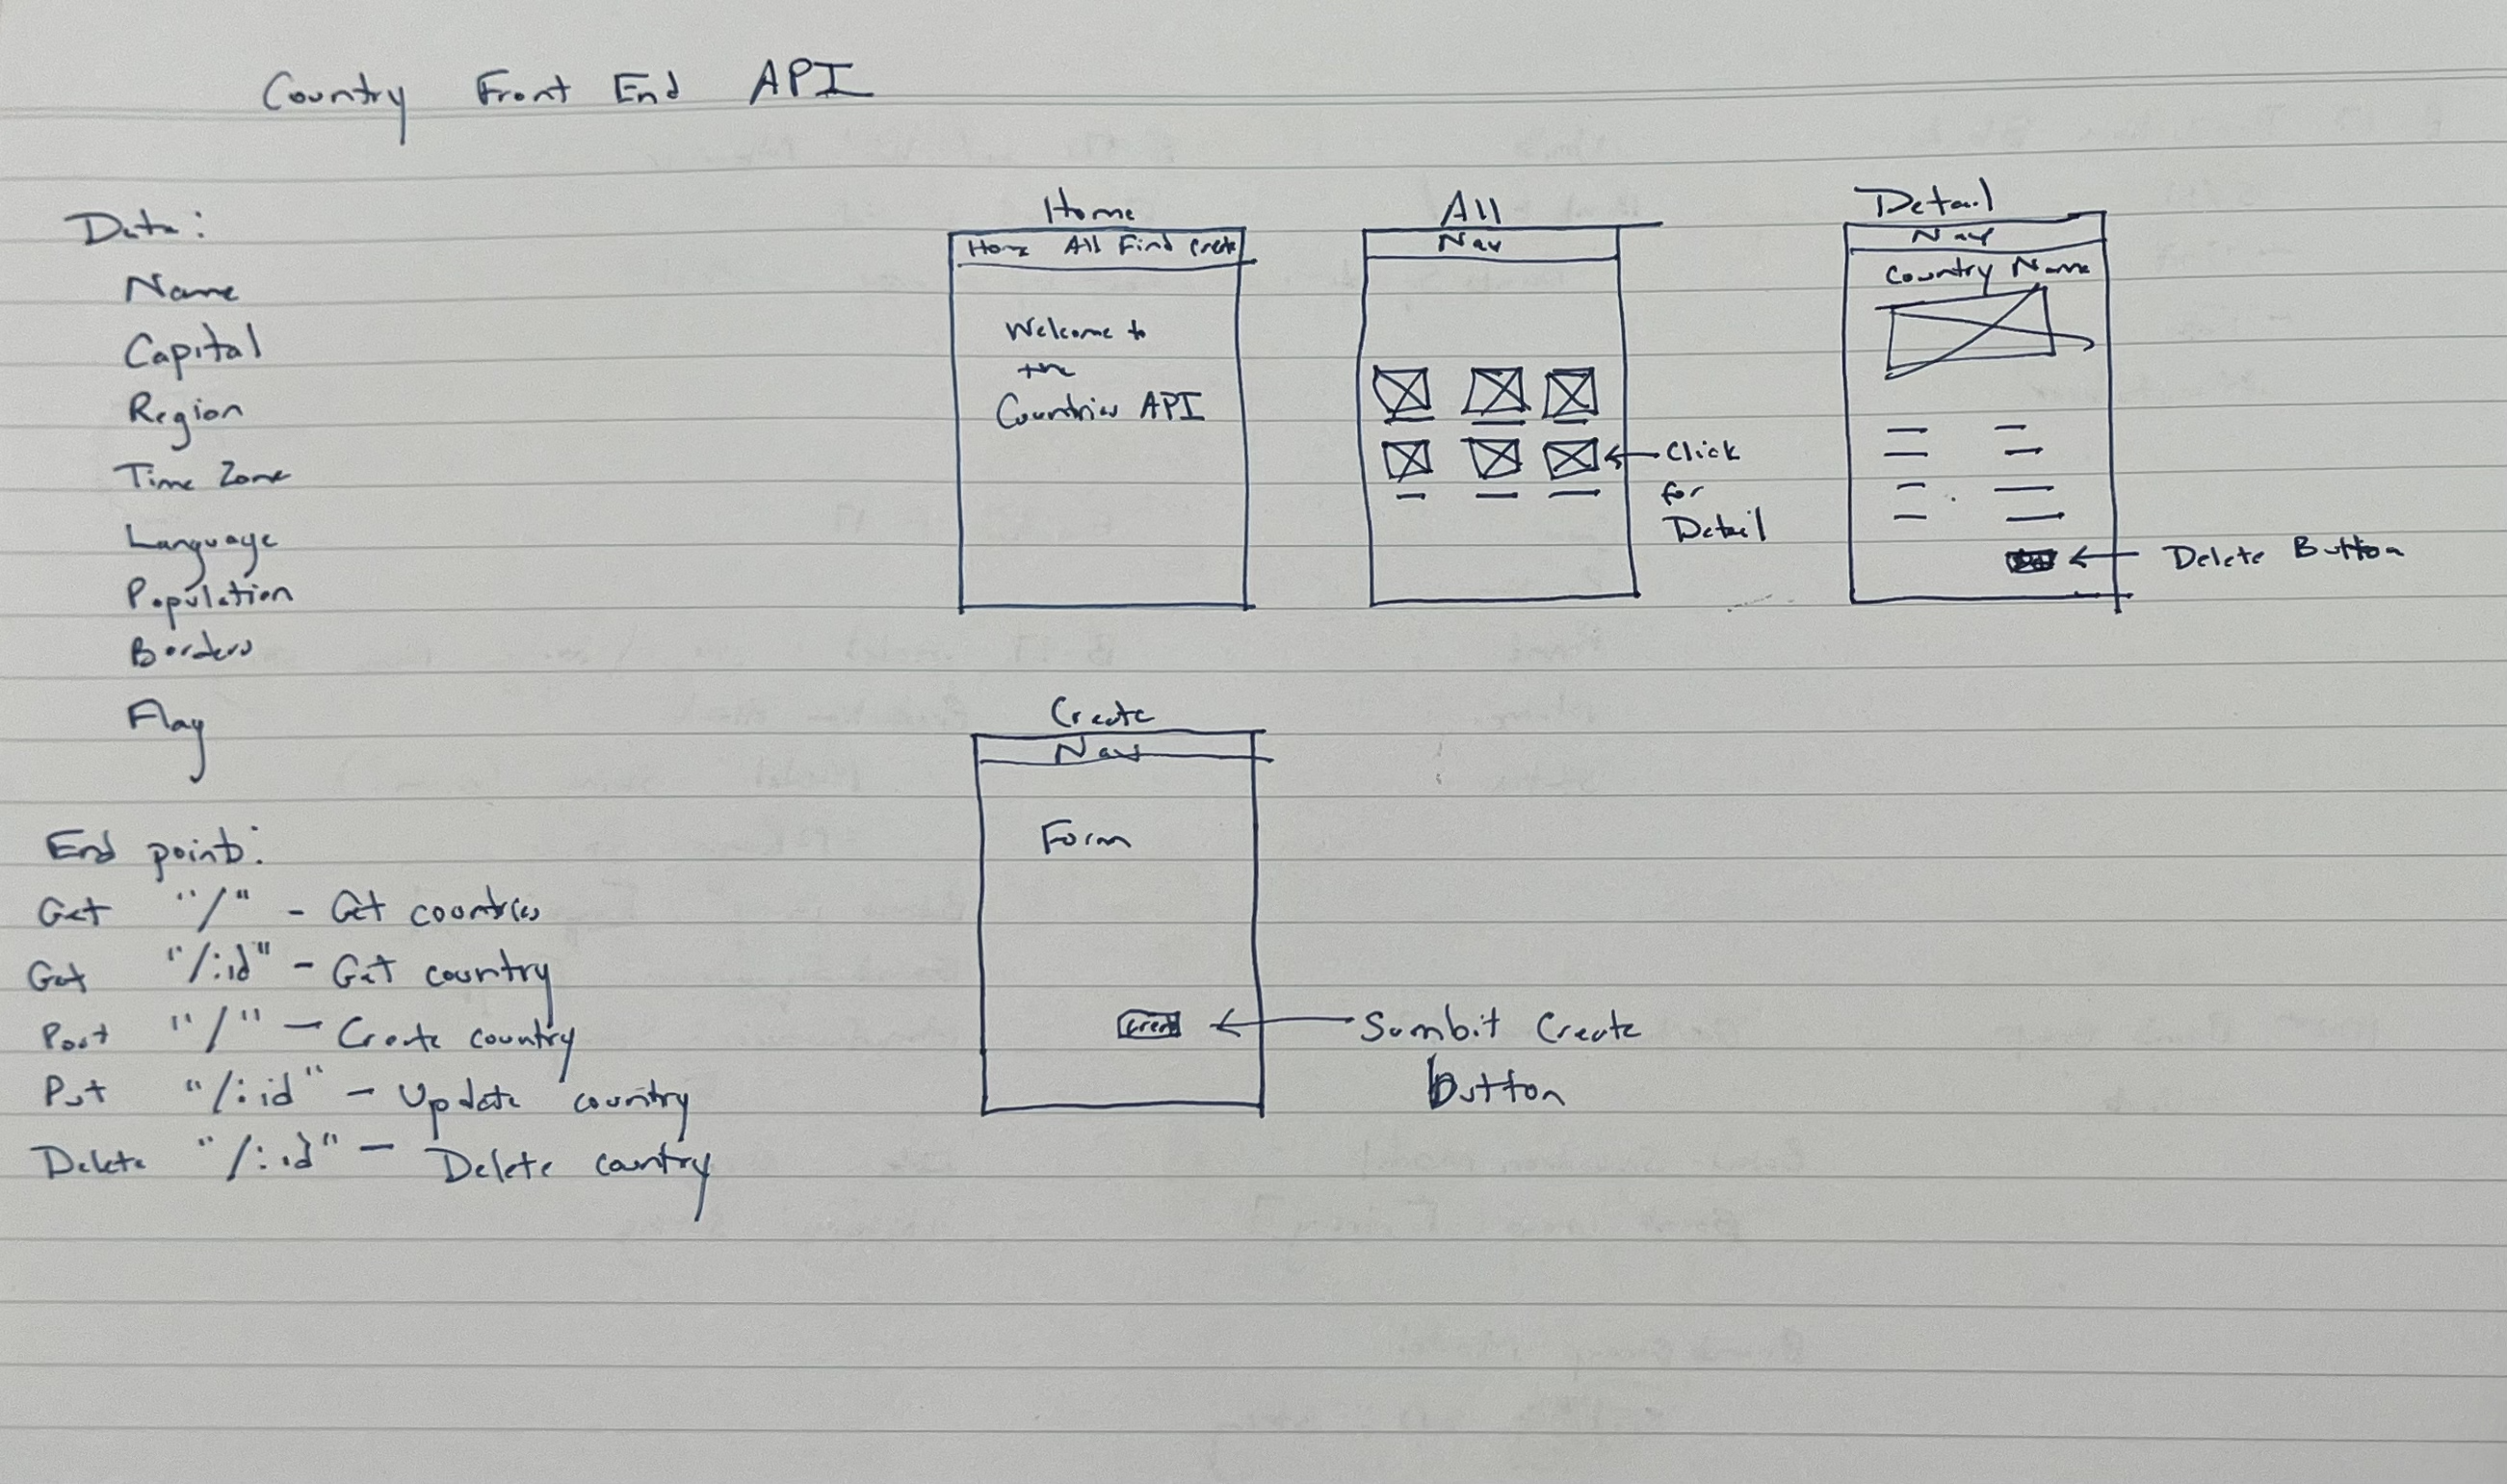 Country Front End API
Data:
Name
Capital
Region
Time Zone
Language
Population
Borders
Flag
End points:
Get "/" - Get countries
Get "/:id" - Get country
Post "/" - Create country
Put "/:id" - Update country
Delete "/:id" - Delete country
Home
Home All Find Create
Welcome to
the
Countries API
All
Nav
Click
for
Detail
Detail
Nav
Country Name
Delete Button
Create
Nav
Form
Create
Sumbit Create
Button